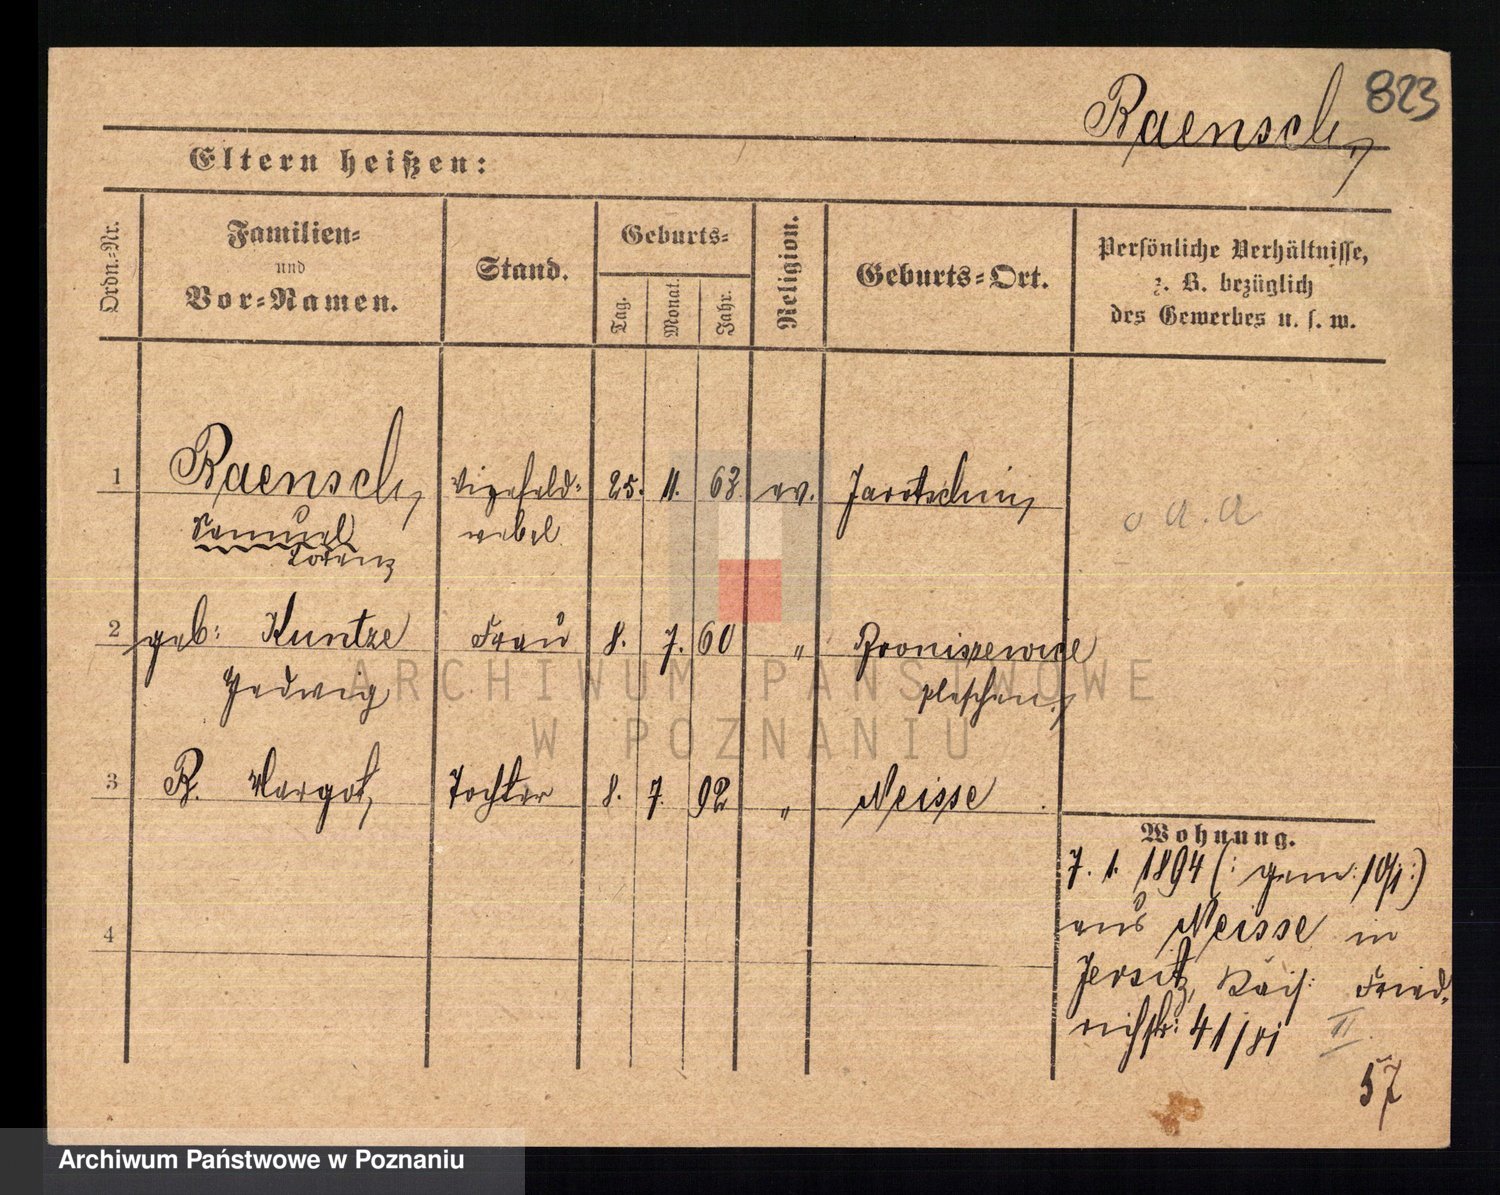 823
Raensch,
Eltern heißen:
Ordn.-Nr.
Familien-
und
Vor-Namen.
Stand.
Geburts-
Tag.
Monat.
Jahr.
Religion.
Geburts-Ort.
Persönliche Verhältnisse,
z. B. bezüglich
des Gewerbes u. s. w.
1 Raensch, Vizefeld- 25. 11. 63 ev. Jarotschin,
Samuel webel
Lorenz
a.a
2 geb: Kuntze Frau 8. 7. 60 " Broniszewice
Hedwig Pleschen,
3 R. Margot, Tochter 8. 7. 92 " Neisse
4
Wohnung.
7. 1. 1894 (: gem: 10/1 :)
aus Neisse in
Jersitz, Kais: Fried-
richstr: 41/
II
57
ARCHIWUM PAŃSTWOWE
W POZNANIU
Archiwum Państwowe w Poznaniu